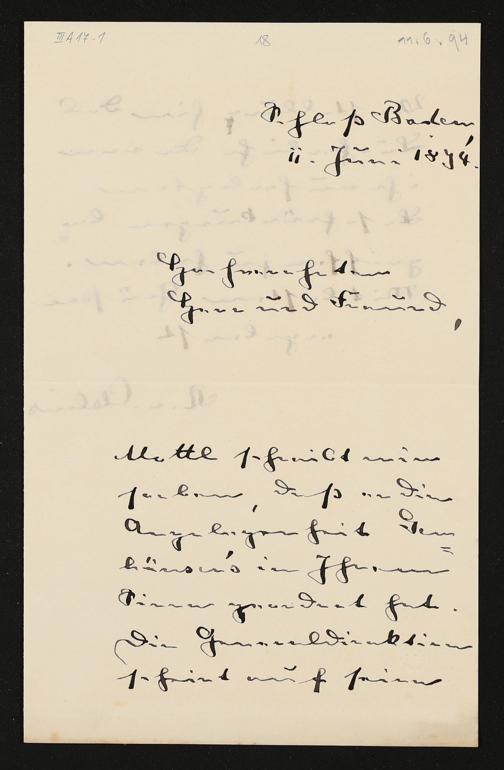 III A 17-1 18 11.6.94
Schloß Baden,
11. Juni 1894.
Hochverehrter
Herr und Freund,
Mottl schreibt mir
soeben, daß er die
Angelegenheit Tann=
häuser's in Ihrem
Sinne geordnet hat.
Die Generaldirektion
scheint auf seine